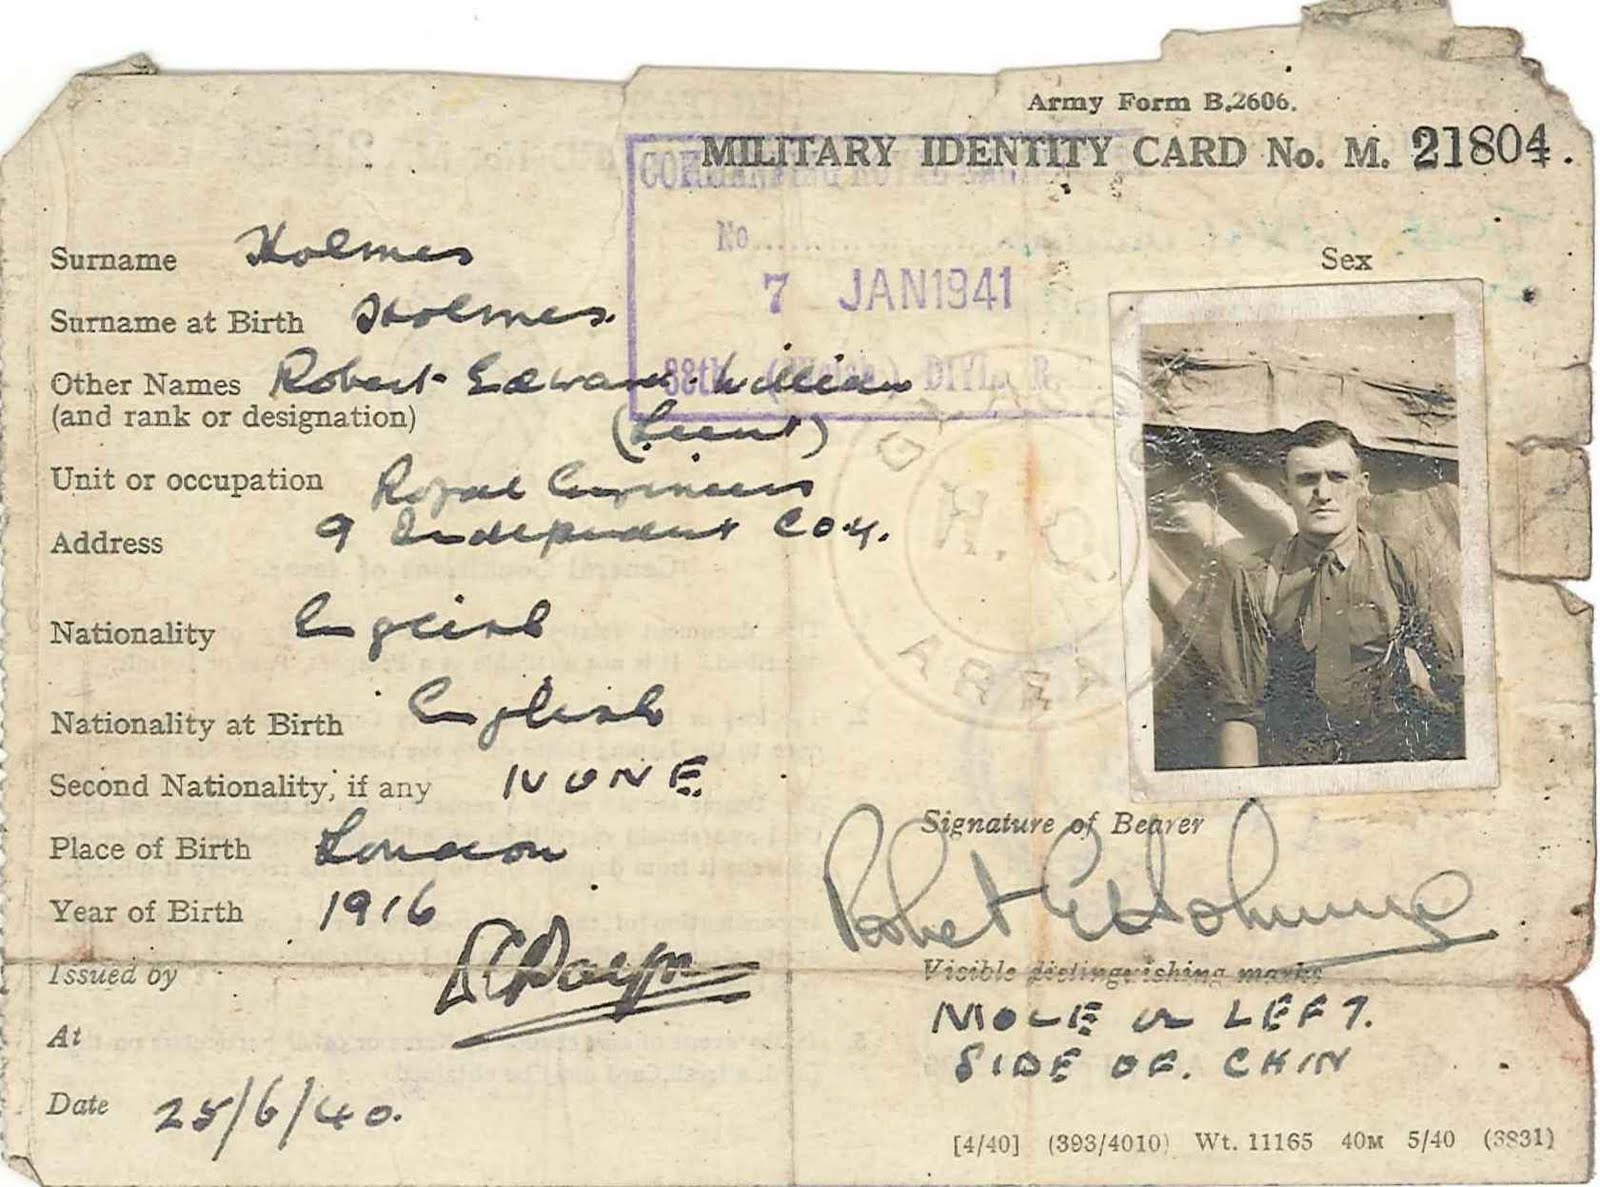 Army Form B.2606.
MILITARY IDENTITY CARD No. M. 21804.
COMMANDING ROYAL
No.
7 JAN 1941
38th (Welsh) DIVL. R.
Sex
Surname Holmes
Surname at Birth Holmes.
Other Names Robert Edward William
(and rank or designation) (Lieut)
Unit or occupation Royal Engineers
Address 9 Independent Coy.
Nationality English
Nationality at Birth English
Second Nationality, if any NONE
Place of Birth London
Year of Birth 1916
Issued by
At
Date 25/6/40.
H.Q.
AREA
Signature of Bearer
Robert E Holmes
Visible distinguishing marks
MOLE on LEFT.
SIDE OF. CHIN
[4/40] (393/4010) Wt. 11165 40M 5/40 (3831)